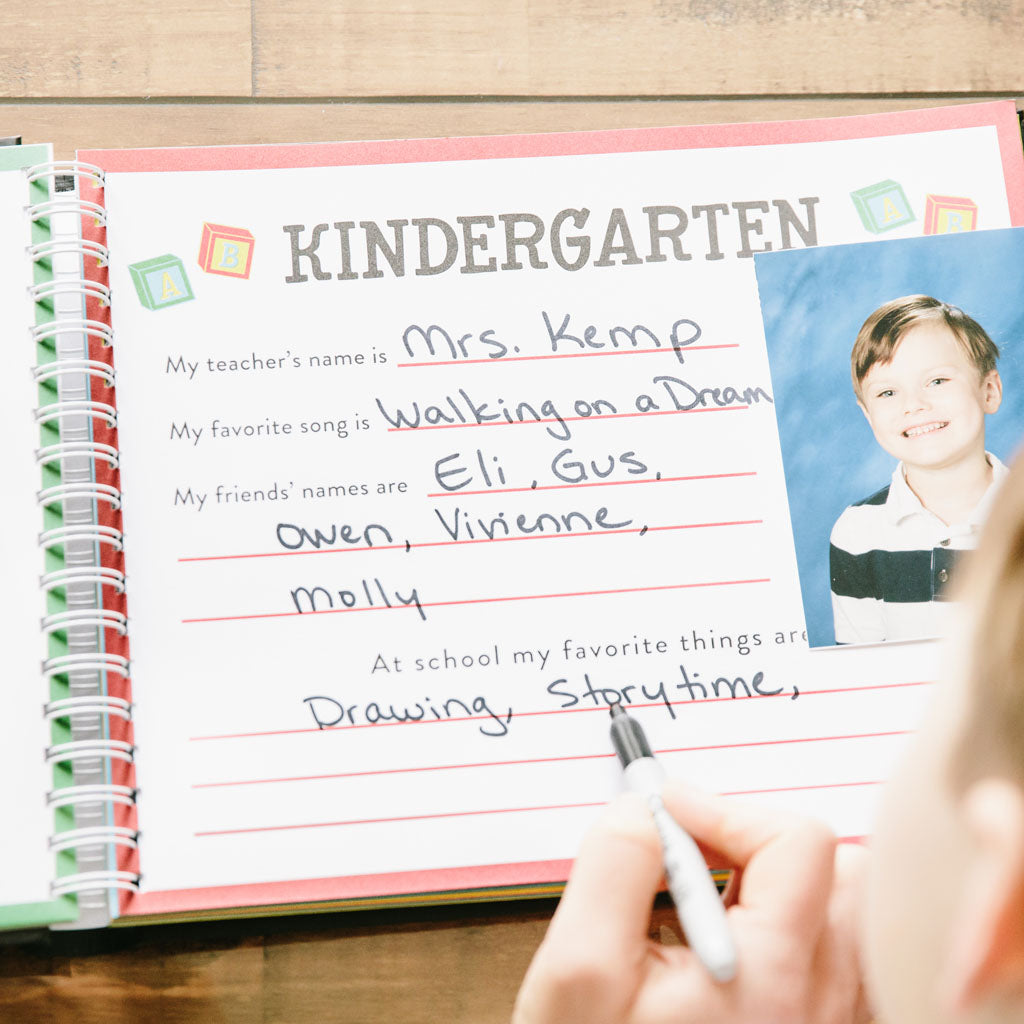 A B KINDERGARTEN A B
My teacher's name is Mrs. Kemp
My favorite song is Walking on a Dream
My friends' names are Eli, Gus,
Owen, Vivienne,
Molly
At school my favorite things are
Drawing, Storytime,